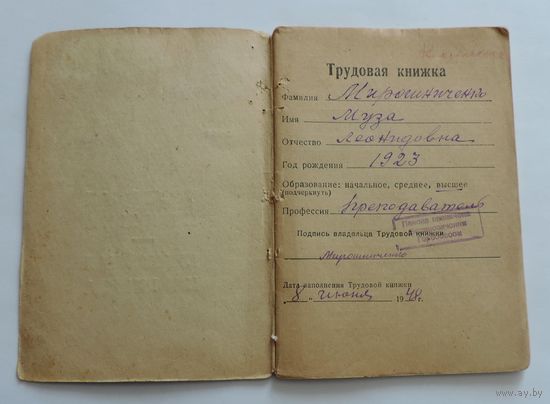 Трудовая книжка
Фамилия Мирошниченко
Имя Муза
Отчество Леонидовна
Год рождения 1923
Образование: начальное, среднее, высшее
(подчеркнуть)
Профессия преподаватель
Подпись владельца Трудовой книжки
Мирошниченко
Дата заполнения Трудовой книжки
8 „ июня 1948 г.
www.ay.by